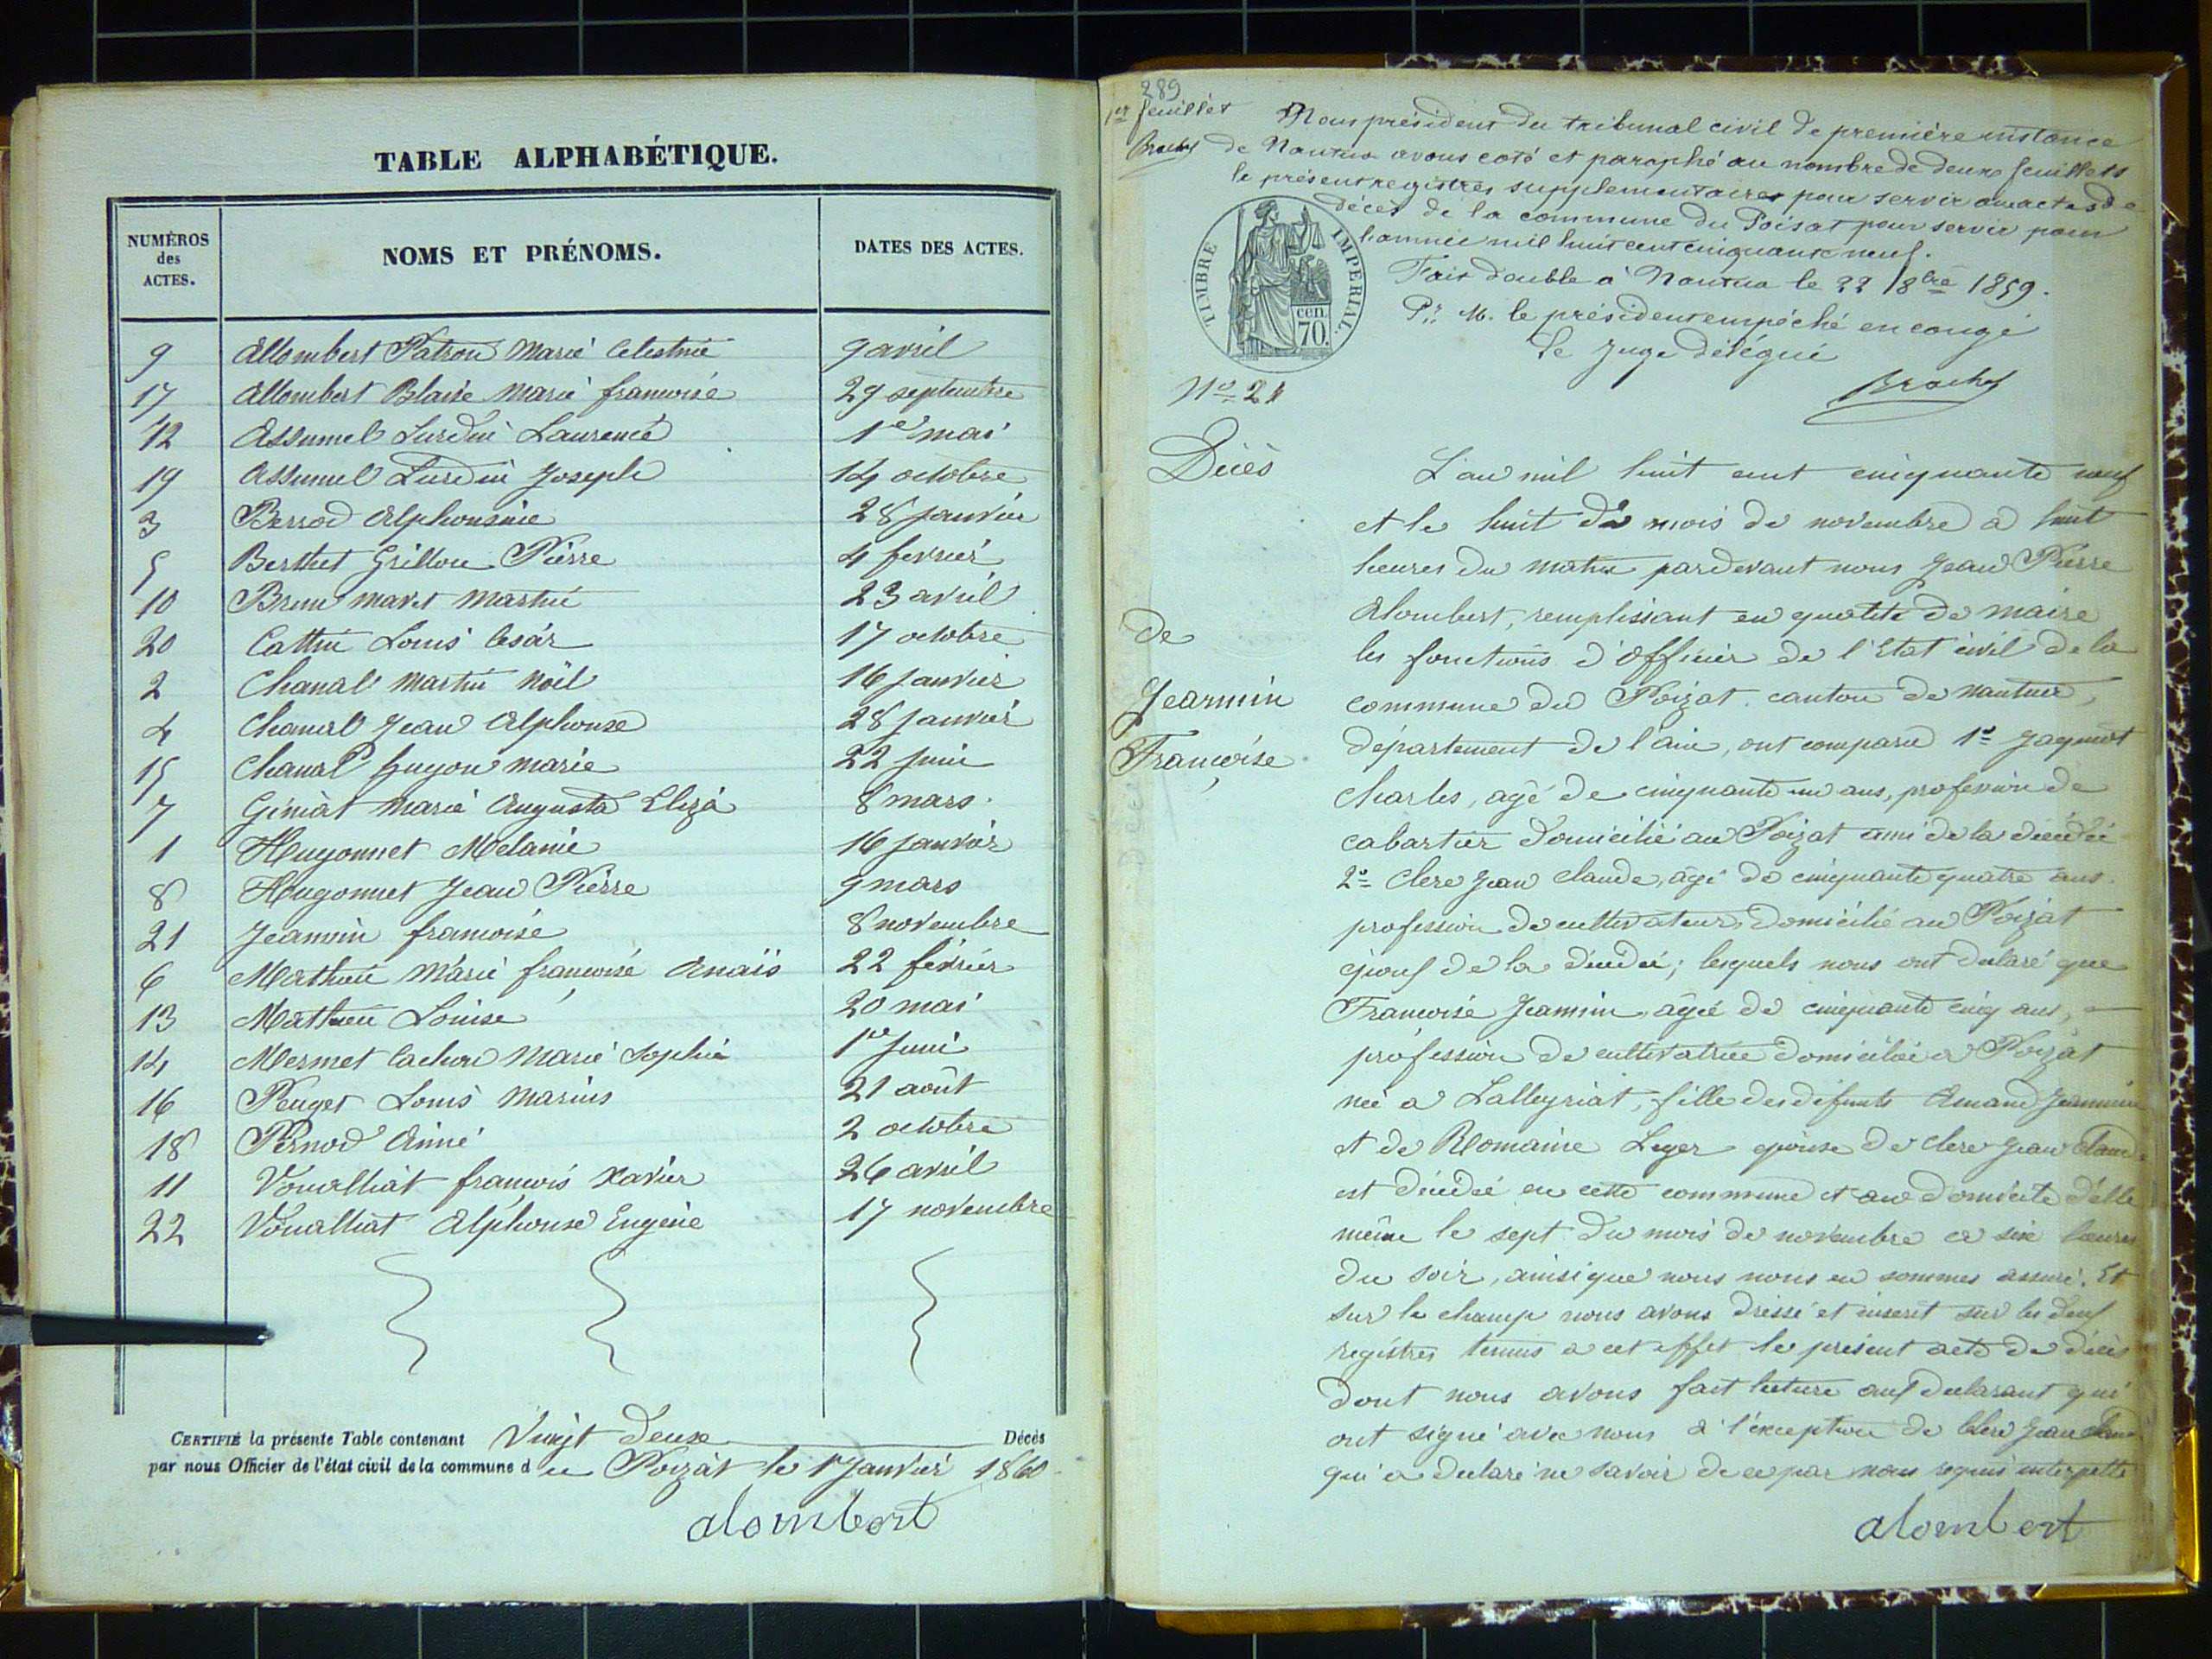 TABLE ALPHABÉTIQUE.
NUMÉROS des ACTES.
NOMS ET PRÉNOMS.
DATES DES ACTES.
9 Allombert Patron Marie Celestine 9 avril
17 Allombert Blaise Marie françoise 29 septembre
12 Assumel Lurdin Laurence 1er mai
19 Assumel Lurdin Joseph 14 octobre
3 Berrod Alphonsine 28 janvier
5 Berthet Grillon Pierre 4 fevrier
10 Brun Maret Martin 23 avril
20 Cattin Louis Cesar 17 octobre
2 Chanal Martin Noël 16 janvier
4 Chanal Jean Alphonse 28 janvier
15 Chanal Guyon Marie 22 juin
7 Géniat Marie Augusta Eliza 8 mars
1 Hugonnet Melanie 16 janvier
8 Hugonnet Jean Pierre 9 mars
21 Jeannin françoise 8 novembre
6 Mathieu Marie françoise Anaïs 22 février
13 Mathieu Louise 20 mai
14 Mermet Cachon Marie Sophie 1er juin
16 Peuget Louis Marius 21 août
18 Pernod Aimé 2 octobre
11 Voualliat françois Xavier 26 avril
22 Voualliat Alphonse Eugène 17 novembre
CERTIFIÉ la présente Table contenant vingt deux Décès
par nous Officier de l'état civil de la commune du Poizat le 1er Janvier 1860
alombert
289
1er feuillet
Nous président du tribunal civil de première instance
Brachet de Nantua avons coté et paraphé au nombre de deux feuillets
le présent registres supplementaires pour servir aux actes de
décès de la commune du Poisat pour servir pour
l'année mil huit cent cinquante neuf.
Fait double à Nantua le 22 8bre 1859.
Pr. M. le président empêché en congé
Le Juge délégué
TIMBRE IMPERIAL.
cen. 70.
No 21
Décès
de
Jeannin
Françoise
L'an mil huit cent cinquante neuf
et le huit du mois de novembre a huit
heures du matin pardevant nous Jean Pierre
Alombert, remplissant en qualité de maire
les fonctions d'officier de l'Etat civil de la
commune du Poizat canton de nantua,
département de l'ain, ont comparu 1o
Charles, agé de cinquante un ans, profession de
cabartier domicilié au Poizat ami de la décédée
2o Clerc Jean Claude, âgé de cinquante quatre ans
profession de cultivateur domicilié au Poizat
époux de la décédée; lesquels nous ont déclaré que
Françoise Jeannin agée de cinquante cinq ans,
profession de cultivatrice domiciliée a Poizat
née a Lalleyriat, fille des défunts Amand Jeannin
et de Romaine Leger épouse de Clerc Jean Claude
est décédée en cette commune et au domicile d'elle
même le sept du mois de novembre a six heures
du soir, ainsi que nous nous en sommes assuré. Et
sur le champ nous avons dressé et inscrit sur les deux
registres tenus a cet effet le présent acte de décès
dont nous avons fait lecture aux declarant qui
ont signé avec nous à l'exception de Clerc Jean Claude
qui a declaré ne savoir de ce par nous requis interpellé
alombert